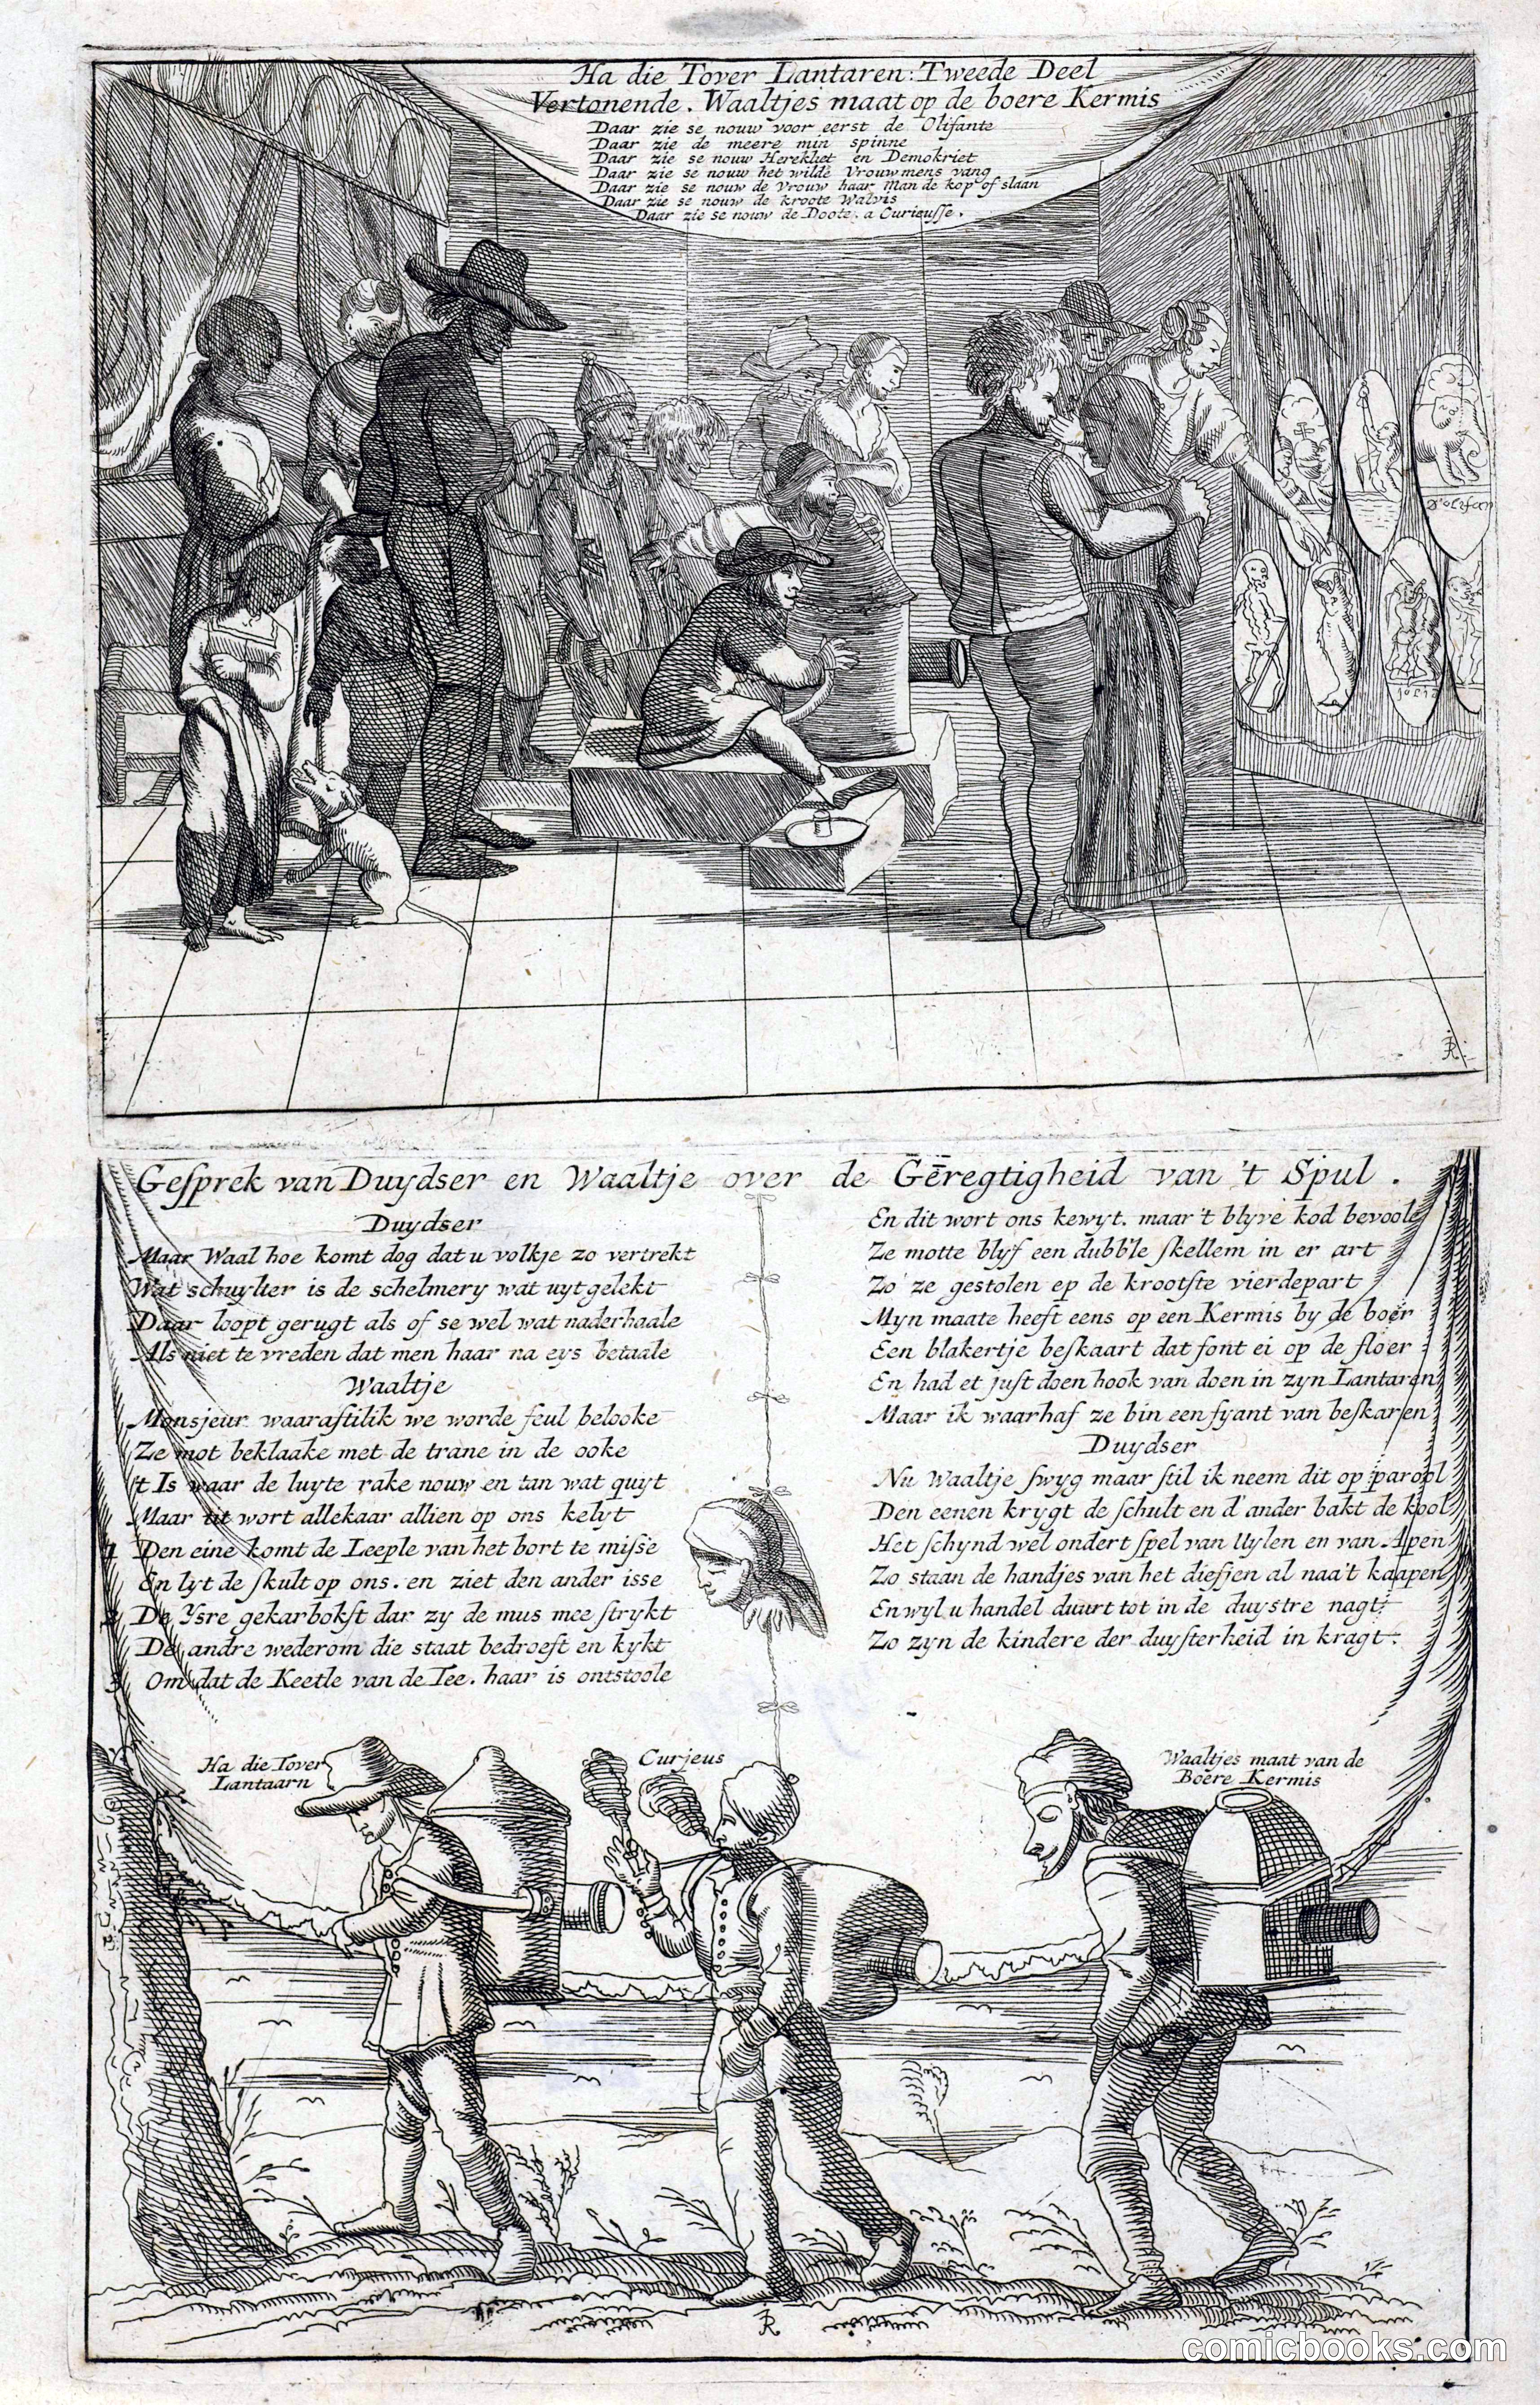 Ha die Tover Lantaren: Tweede Deel
Vertonende. Waaltjes maat op de boere Kermis
Daar zie se nouw voor eerst de Olifante
Daar zie de meere min spinne
Daar zie se nouw Herekliet en Demokriet
Daar zie se nouw het wilde Vrouwmens vang
Daar zie se nouw de Vrouw haar Man de kop of slaan
Daar zie se nouw de kroote Walvis
Daar zie se nouw de Doote. a Curieusſe.
D'olifan
Geſprek van Duydser en Waaltje over de Gēregtigheid van 't Spul.
Duydser
Maar Waal hoe komt dog dat u volkje zo vertrekt
Wat schuylter is de schelmery wat uyt gelekt
Daar loopt gerugt als of se wel wat naderhaale
Als niet te vreden dat men haar na eys betaale
Waaltje
Monsjeur waaraſtilik we worde feul belooke
Ze mot beklaake met de trane in de ooke
't Is waar de luyte rake nouw en tan wat quyt
Maar tit wort allekaar allien op ons kelyt
1 Den eine komt de Leeple van het bort te miſse
En lyt de ſkult op ons. en ziet den ander isse
2 De Ysre gekarbokſt dar zy de mus mee ſtrykt
De andre wederom die staat bedroeft en kykt
3 Om dat de Keetle van de Tee. haar is ontstoole
En dit wort ons kewyt. maar 't blyve kod bevoole
Ze motte blyf een dubb'le ſkellem in er art
Zo ze gestolen ep de krootſte vierdepart
Myn maate heeft eens op een Kermis by de boer
Een blakertje beſkaart dat font ei op de floer
En had et juſt doen hook van doen in zyn Lantaren
Maar ik waarhaf ze bin een fyant van beſkaren
Duydser
Nu Waaltje ſwyg maar ſtil ik neem dit op parool
Den eenen krygt de ſchult en d'ander bakt de kool
Het ſchynd wel ondert ſpel van Uylen en van Apen
Zo staan de handjes van het diefjen al naa't kaapen
En wyl u handel duurt tot in de duystre nagt
Zo zyn de kindere der duyſterheid in kragt.
Ha die Tover
Lantaarn
Curjeus
Waaltjes maat van de
Boere Kermis
comicbooks.com